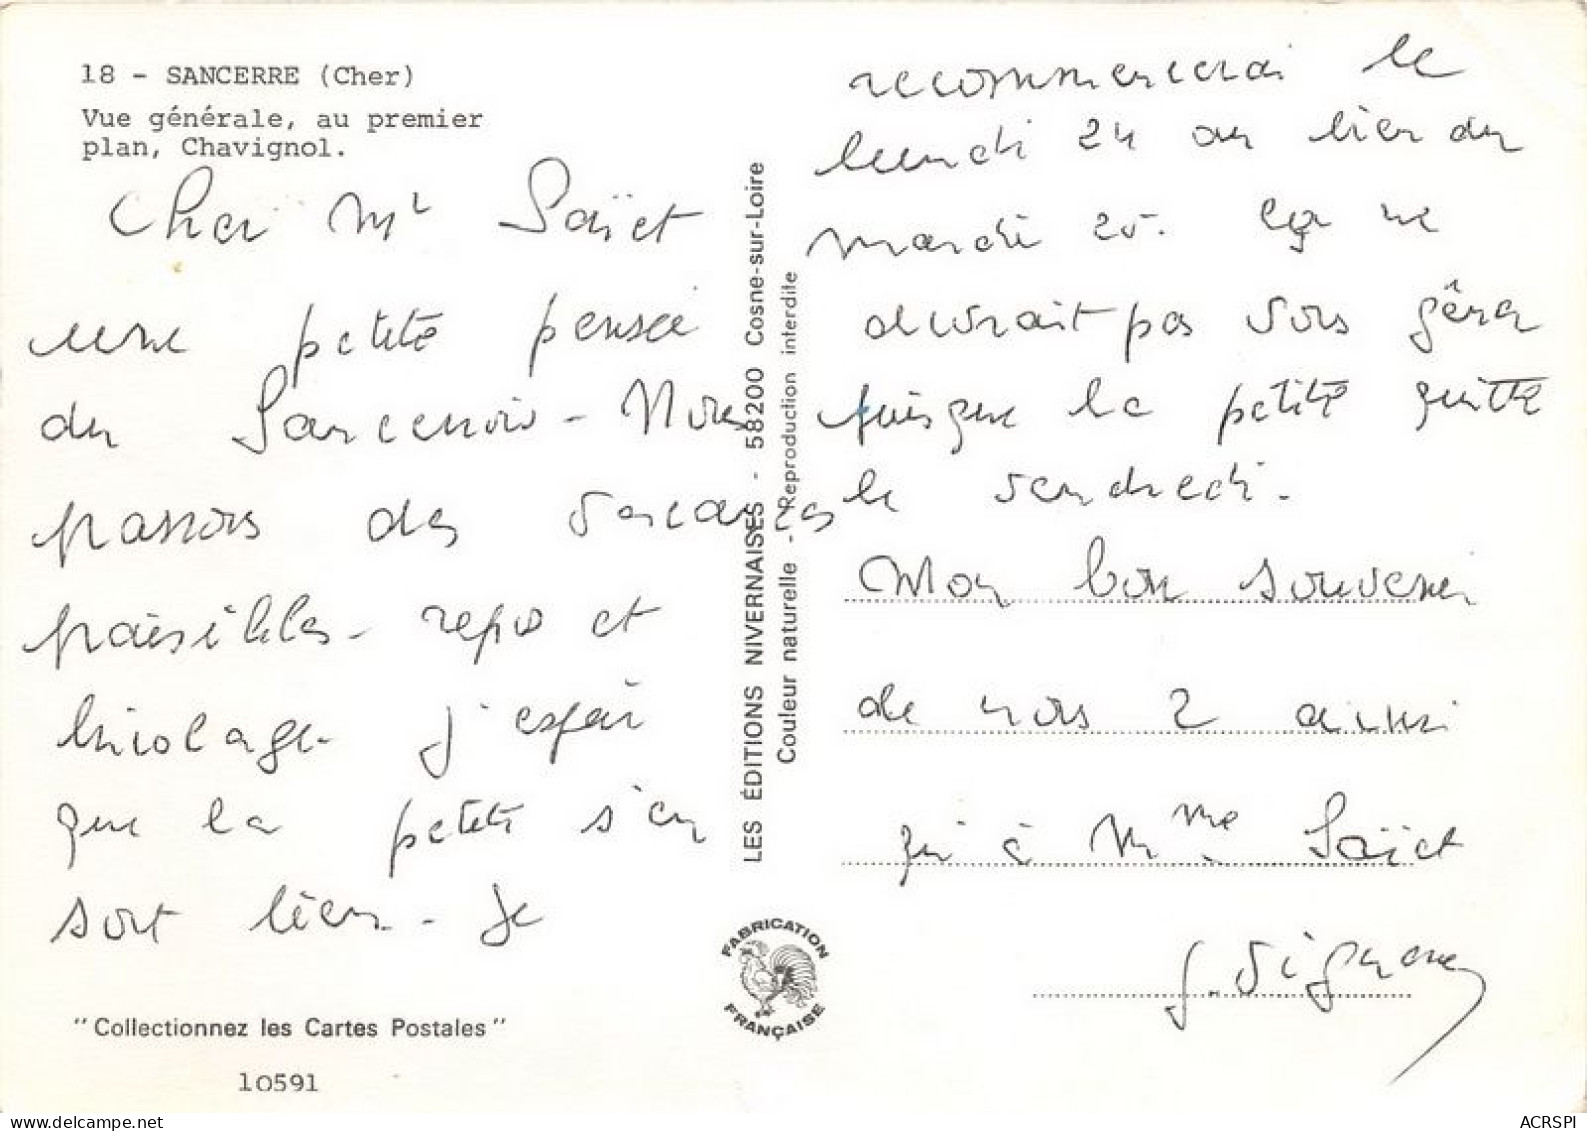 18 - SANCERRE (Cher)
Vue générale, au premier
plan, Chavignol.
Cher Mr Saïet
une petite pensée
du Sancerrois - Nous
passons des vacances
paisibles - repos et
bricolage - j'espère
que la petite s'en
sort bien - Je
"Collectionnez les Cartes Postales"
10591
LES ÉDITIONS NIVERNAISES - 58200 Cosne-sur-Loire
Couleur naturelle - Reproduction interdite
FABRICATION
FRANÇAISE
recommencerai le
lundi 24 au lieu du
mardi 25. Ça ne
devrait pas vous gêner
puisque la petite quitte
le vendredi.
Mon bon souvenir
de nous 2 ainsi
qu'à Mme Saïet
ACRSPI